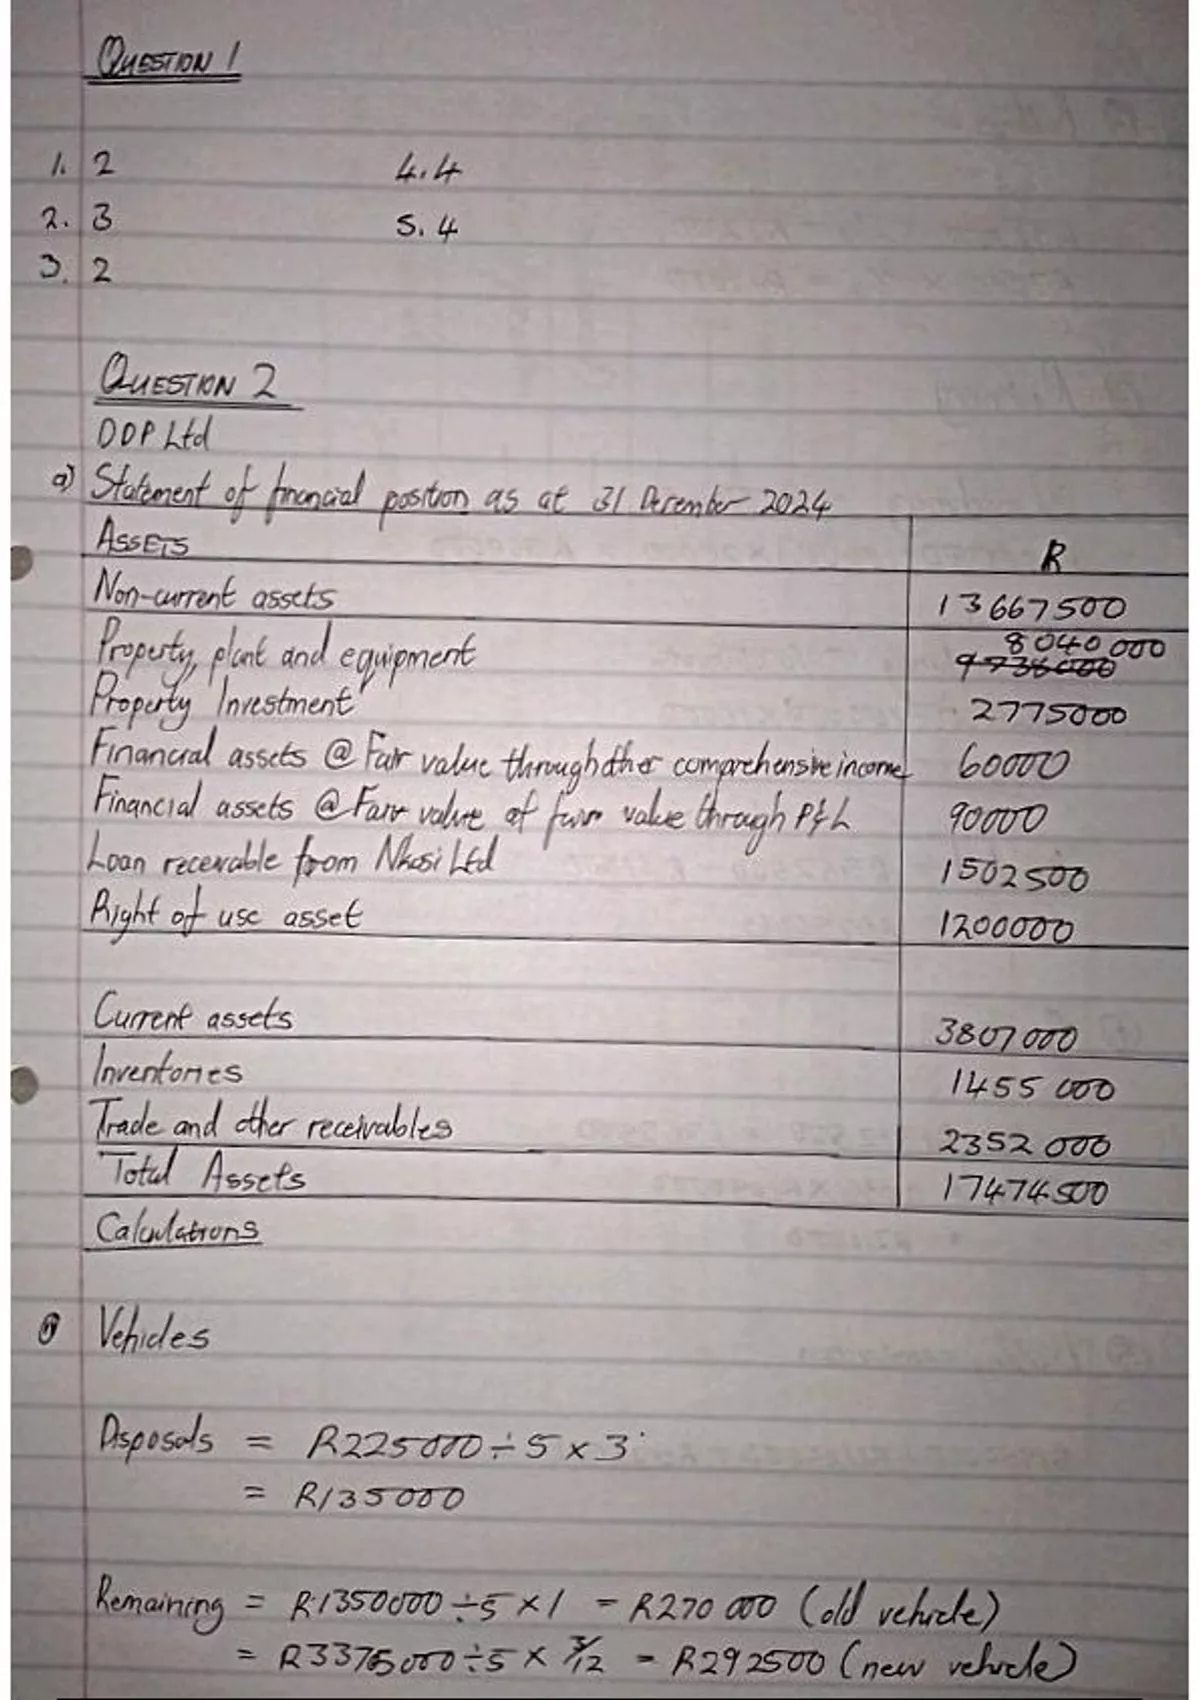 QUESTION 1
1. 2 4. 4
2. 3 5. 4
3. 2
QUESTION 2
DDP Ltd
a) Statement of financial position as at 31 December 2024
ASSETS R
Non-current assets 13 667 500
Property, plant and equipment 8 040 000
9 736 000
Property Investment 2775000
Financial assets @ Fair value through other comprehensive income 60000
Financial assets @ Fair value of fair value through P&L 90000
Loan receivable from Nkosi Ltd 1502500
Right of use asset 1200000
Current assets 3807000
Inventories 1455 000
Trade and other receivables 2352 000
Total Assets 17474500
Calculations
Vehicles
Disposals = R225000 ÷ 5 x 3
= R135000
Remaining = R1350000 ÷ 5 x 1 = R270 000 (old vehicle)
= R3375000 ÷ 5 x 3/12 = R292500 (new vehicle)